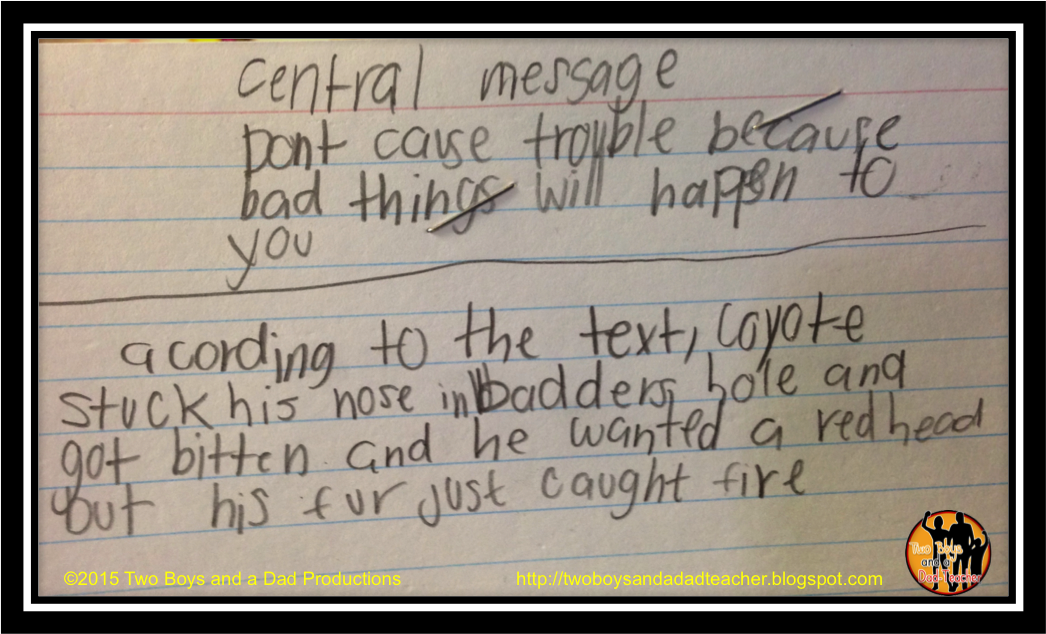 central message
Dont cause trouble because
bad things will happen to
you
acording to the text, Coyote
stuck his nose in badders hole and
got bitten and he wanted a redhead
but his fur just caught fire
©2015 Two Boys and a Dad Productions
http://twoboysandadadteacher.blogspot.com
Two Boys
and a
Dad-Teacher